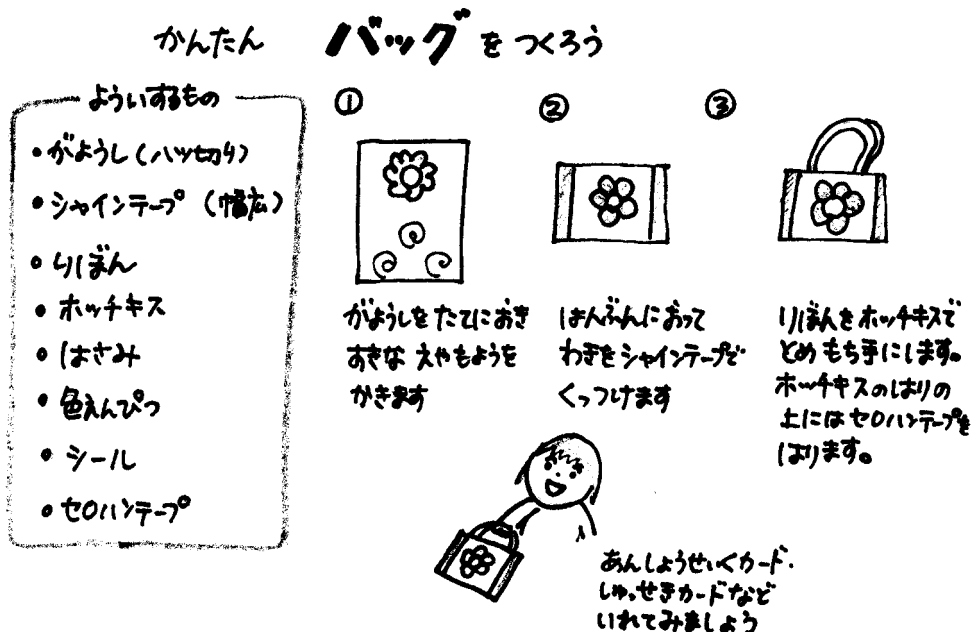 かんたん バッグをつくろう
よういするもの
・がようし(ハツ切り)
・シャインテープ(幅広)
・りぼん
・ホッチキス
・はさみ
・色えんぴつ
・シール
・セロハンテープ
①
がようしをたてにおき
すきな えやもようを
かきます
②
はんぶんにおって
わきをシャインテープで
くっつけます
③
りぼんをホッチキスで
とめ もち手にします。
ホッチキスのはりの
上にはセロハンテープを
はります。
あんしょうせいくカード・
しゅっせきカードなど
いれてみましょう